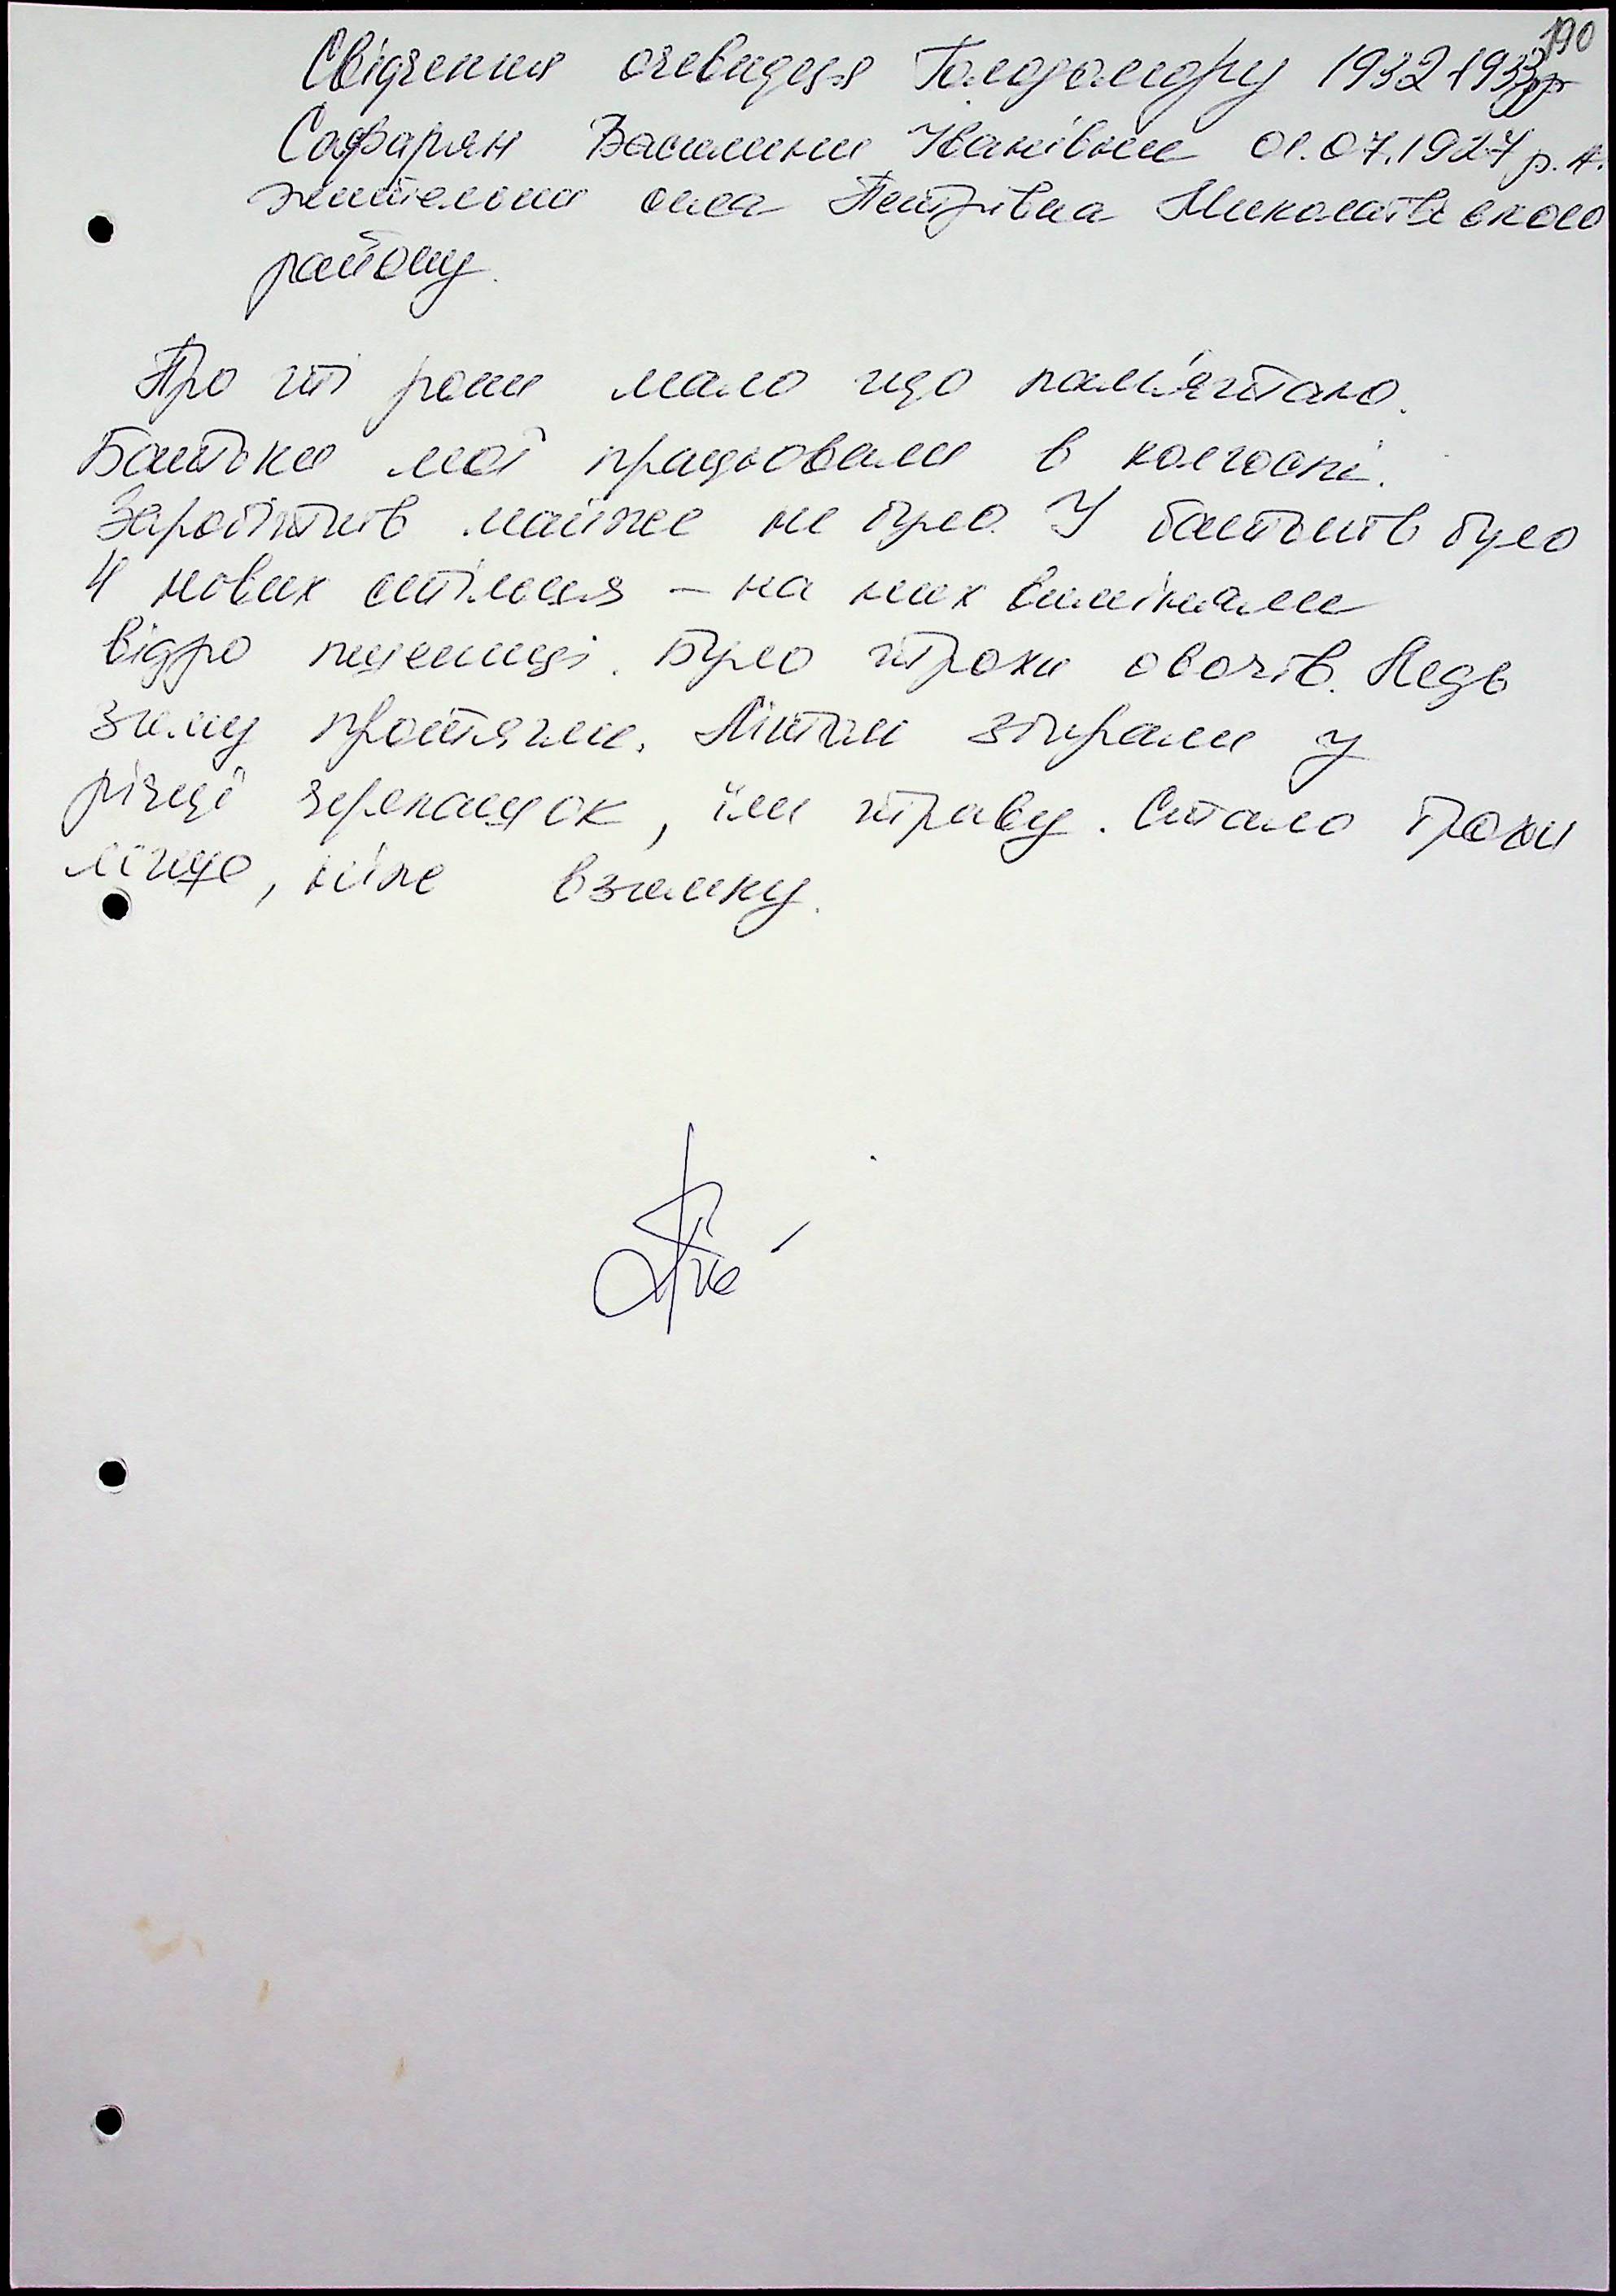 190
Свідчення очевидця Голодомору 1932-1933рр
Сафарян Василини Іванівни 01.07.1927 р.н.
жительки села Петрівка Миколаївського
району.
Про ті роки мало що пам'ятаю.
Батьки мої працювали в колгоспі.
Заробітків майже не було. У батьків було
4 нових стільця – на них виміняли
відро пшениці. Було трохи овочів. Ледь
зиму протягли. Літом збирали у
річці черепашок, їли траву. Стало трохи
лігще, ніже взимку.